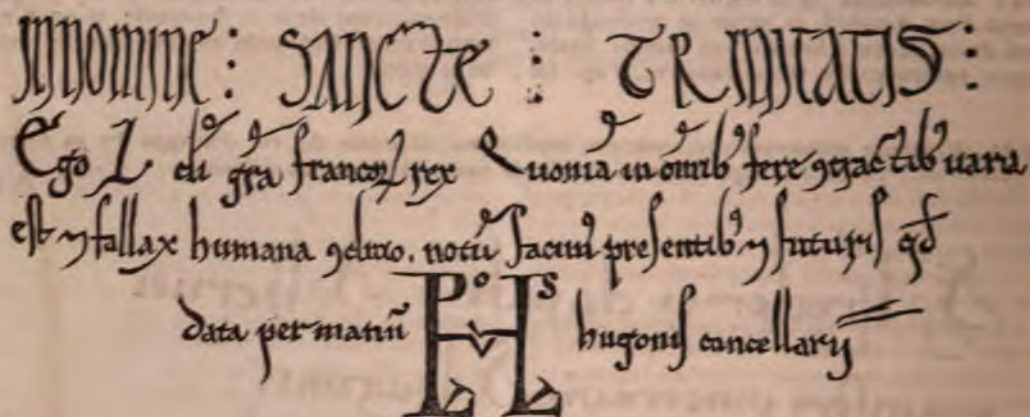 IN NOMINE : SANCTE : TRINITATIS :
Ego L di gra francoꝝ rex Quonia in omib' fere ꝯtractib' uaria
est ⁊ fallax humana ꝯditio. notū facim' presentib' ⁊ futuris qd
data per manū hugonis cancellarij